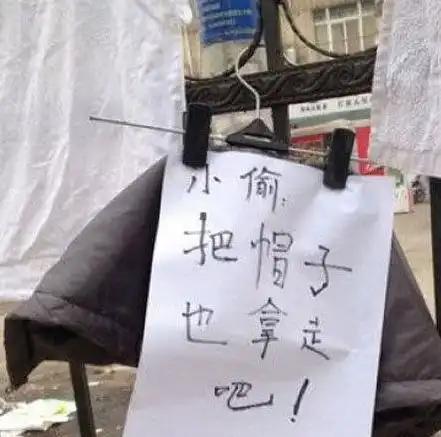 小偷:
把帽子
也拿走
吧!